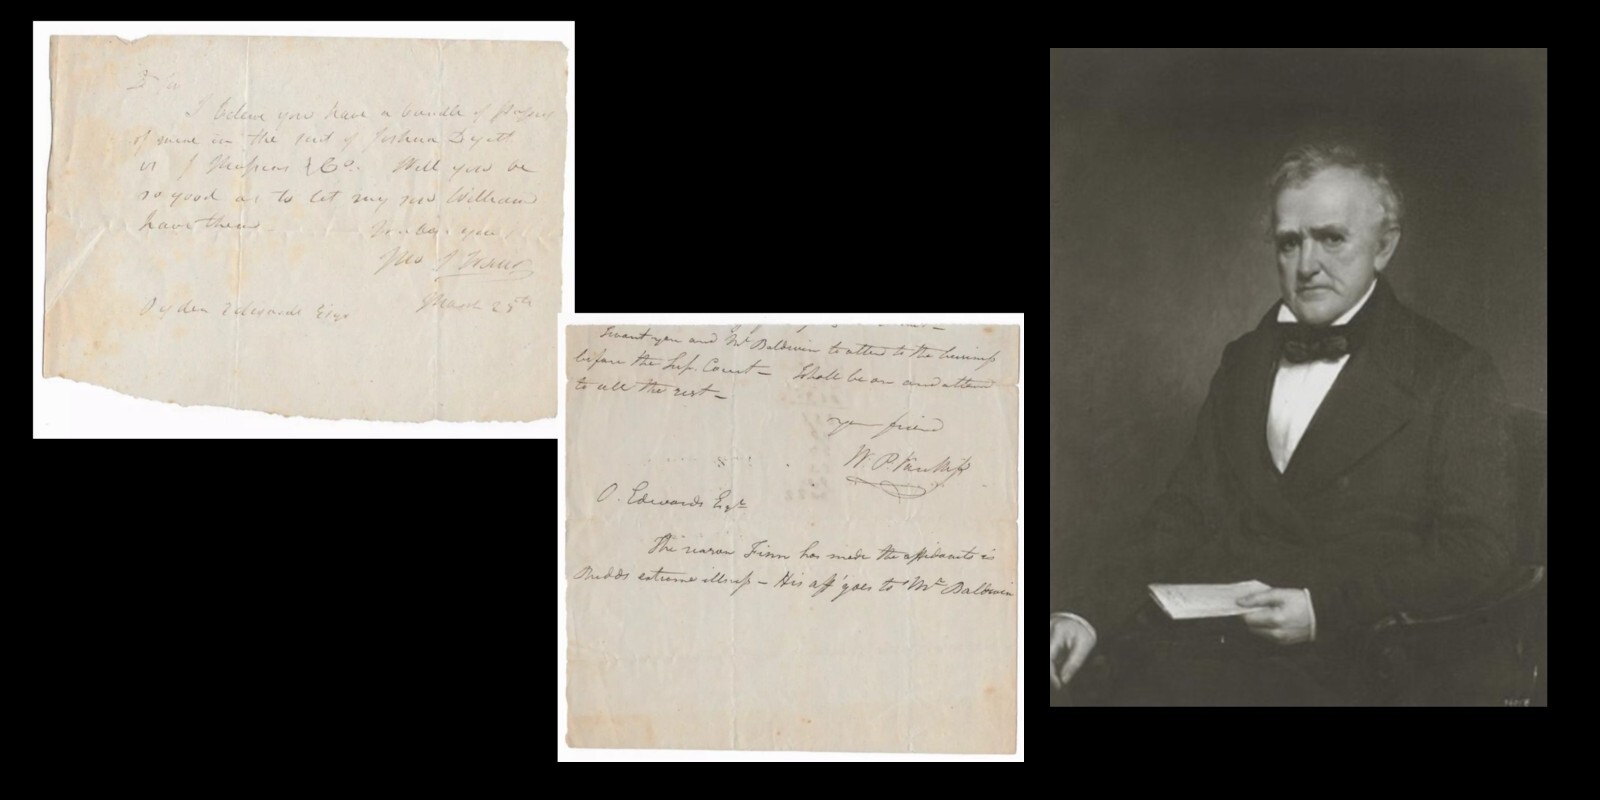 D Sir
I believe you have a bundle of papers
of mine in the suit of Joshua Dyett
vs J & Co. Will you be
so good as to let my son William
have them.
March 25th
Ogden Edwards Esqr
I want you and Mr Baldwin to attend to the business
before the Sup. Court — I shall be on and attend
to all the rest —
your friend
W. P. Van Ness
O. Edwards Esqr
The reason Finn has made the affidavits is
Budds extreme illness — His aff goes to Mr Baldwin